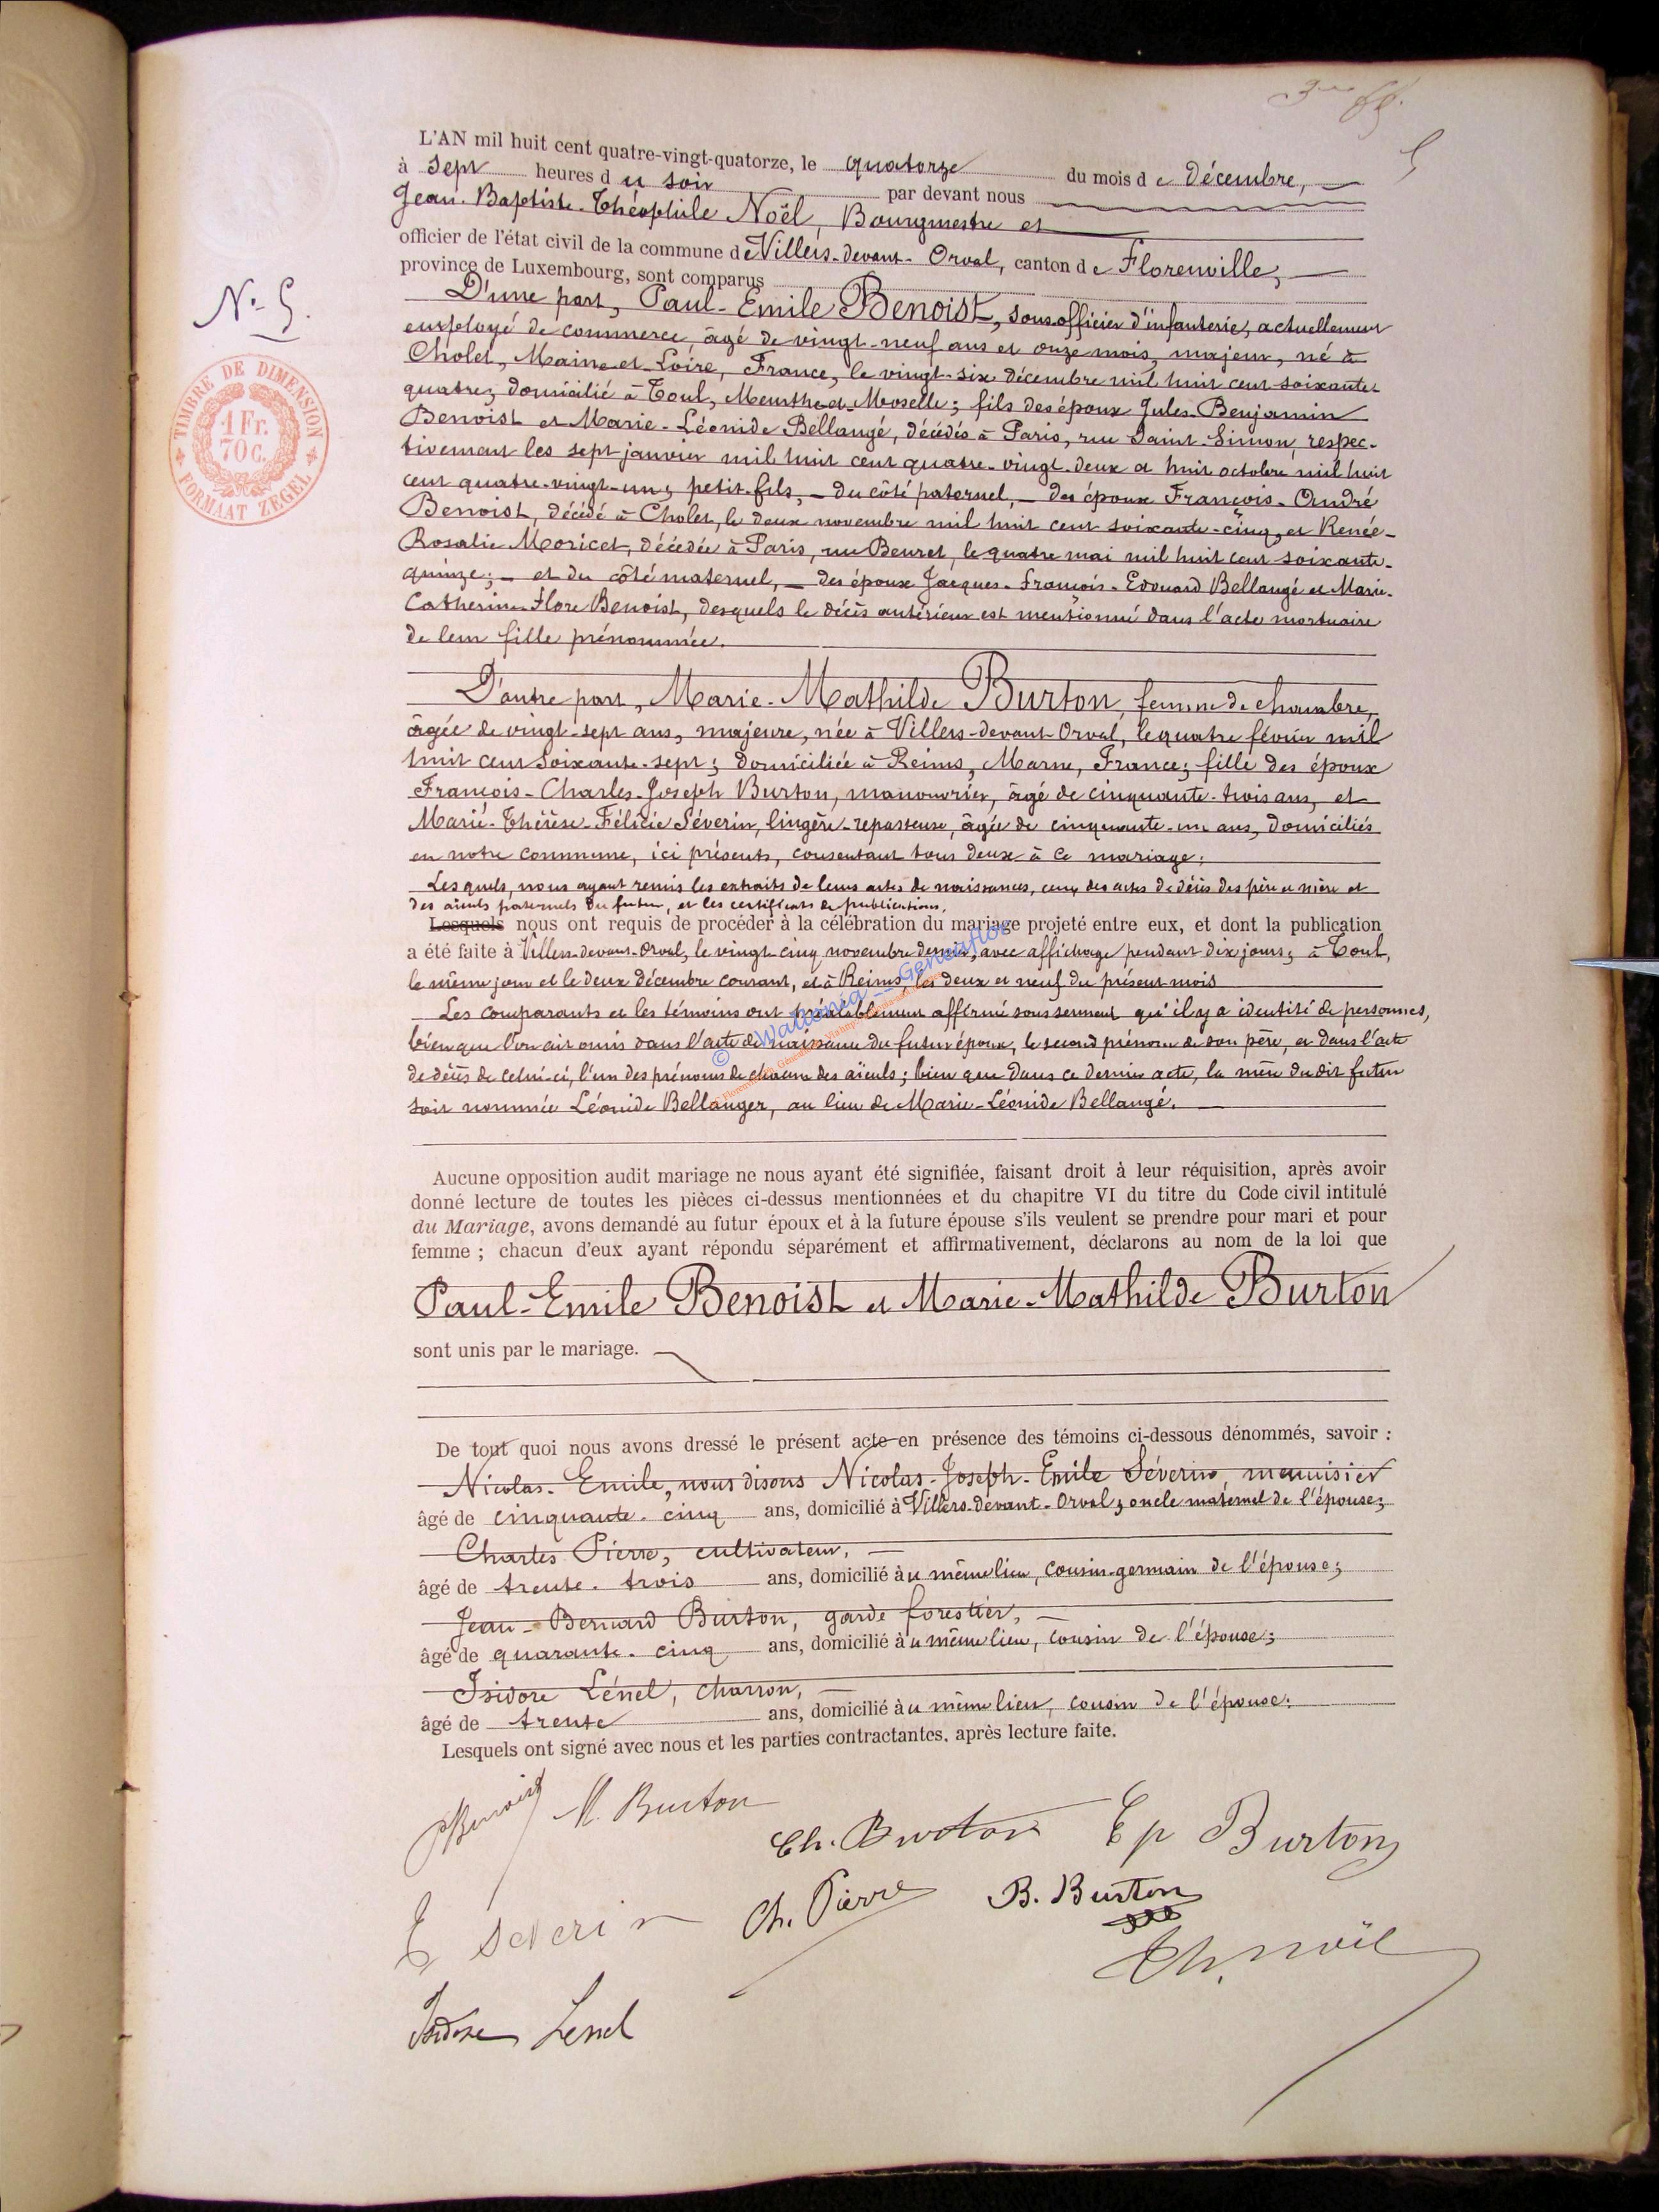 3me ff.
5
L'AN mil huit cent quatre-vingt-quatorze, le quatorze du mois de Décembre,
à sept heures du soir par devant nous
Jean-Baptiste-Théophile Noël, Bourgmestre et
officier de l'état civil de la commune de Villers-devant-Orval, canton de Florenville,
province de Luxembourg, sont comparus
N° 5.
TIMBRE DE DIMENSION
1 Fr.
70 C.
FORMAAT ZEGEL
D'une part, Paul-Emile Benoist, sous officier d'infanterie, actuellement
employé de commerce, âgé de vingt-neuf ans et onze mois, majeur, né à
Cholet, Maine-et-Loire, France, le vingt-six décembre mil huit cent soixante-
quatre, domicilié à Toul, Meurthe-et-Moselle; fils des époux Jules-Benjamin
Benoist et Marie-Léonide Bellangé, décédés à Paris, rue Saint-Simon, respec-
tivement les sept janvier mil huit cent quatre-vingt-deux et huit octobre mil huit
cent quatre-vingt-un; petit-fils, – du côté paternel, – des époux François-André
Benoist, décédé à Cholet, le deux novembre mil huit cent soixante-cinq, et Renée-
Rosalie Moricet, décédée à Paris, rue Beuret, le quatre mai mil huit cent soixante-
quinze; – et du côté maternel, – des époux Jacques-François-Edouard Bellangé et Marie-
Catherine-Flore Benoist, desquels le décès antérieur est mentionné dans l'acte mortuaire
de leur fille prénommée.
D'autre part, Marie-Mathilde Burton, femme de chambre,
âgée de vingt-sept ans, majeure, née à Villers-devant-Orval, le quatre février mil
huit cent soixante-sept; domiciliée à Reims, Marne, France; fille des époux
François-Charles-Joseph Burton, manouvrier, âgé de cinquante-trois ans, et
Marie-Thérèse-Félicie Séverin, lingère-repasseuse, âgée de cinquante-un ans, domiciliés
en notre commune, ici présents, consentant tous deux à ce mariage;
Lesquels, nous ayant remis les extraits de leurs actes de naissances, ceux des actes de décès des père et mère et
des aïeuls paternels du futur, et les certificats de publications,
Lesquels nous ont requis de procéder à la célébration du mariage projeté entre eux, et dont la publication
a été faite à Villers-devant-Orval, le vingt-cinq novembre dernier, avec affichage pendant dix jours; à Toul,
le même jour et le deux décembre courant, et à Reims les deux et neuf du présent mois
Les comparants et les témoins ont préalablement affirmé sous serment qu'il y a identité de personnes,
bien que l'on ait omis dans l'acte de naissance du futur époux, le second prénom de son père, et dans l'acte
de décès de celui-ci, l'un des prénoms de chacun des aïeuls; bien que dans ce dernier acte, la mère du dit futur
soit nommée Léonide Bellanger, au lieu de Marie-Léonide Bellangé.
© Wallonia – Geneaflor
Aucune opposition audit mariage ne nous ayant été signifiée, faisant droit à leur réquisition, après avoir
donné lecture de toutes les pièces ci-dessus mentionnées et du chapitre VI du titre du Code civil intitulé
du Mariage, avons demandé au futur époux et à la future épouse s'ils veulent se prendre pour mari et pour
femme ; chacun d'eux ayant répondu séparément et affirmativement, déclarons au nom de la loi que
Paul-Emile Benoist et Marie-Mathilde Burton
sont unis par le mariage.
De tout quoi nous avons dressé le présent acte en présence des témoins ci-dessous dénommés, savoir :
Nicolas-Emile, nous disons Nicolas-Joseph-Emile Séverin, menuisier
âgé de cinquante-cinq ans, domicilié à Villers-devant-Orval, oncle maternel de l'épouse;
Charles Pierre, cultivateur,
âgé de trente-trois ans, domicilié au même lieu, cousin-germain de l'épouse;
Jean-Bernard Burton, garde forestier,
âgé de quarante-cinq ans, domicilié au même lieu, cousin de l'épouse;
Isidore Lénel, charron,
âgé de trente ans, domicilié au même lieu, cousin de l'épouse.
Lesquels ont signé avec nous et les parties contractantes, après lecture faite.
PBenoist M. Burton
Ch. Burton Ep Burton
E Severin Ch. Pierre B. Burton
Th. Noël
Isidore Lenel